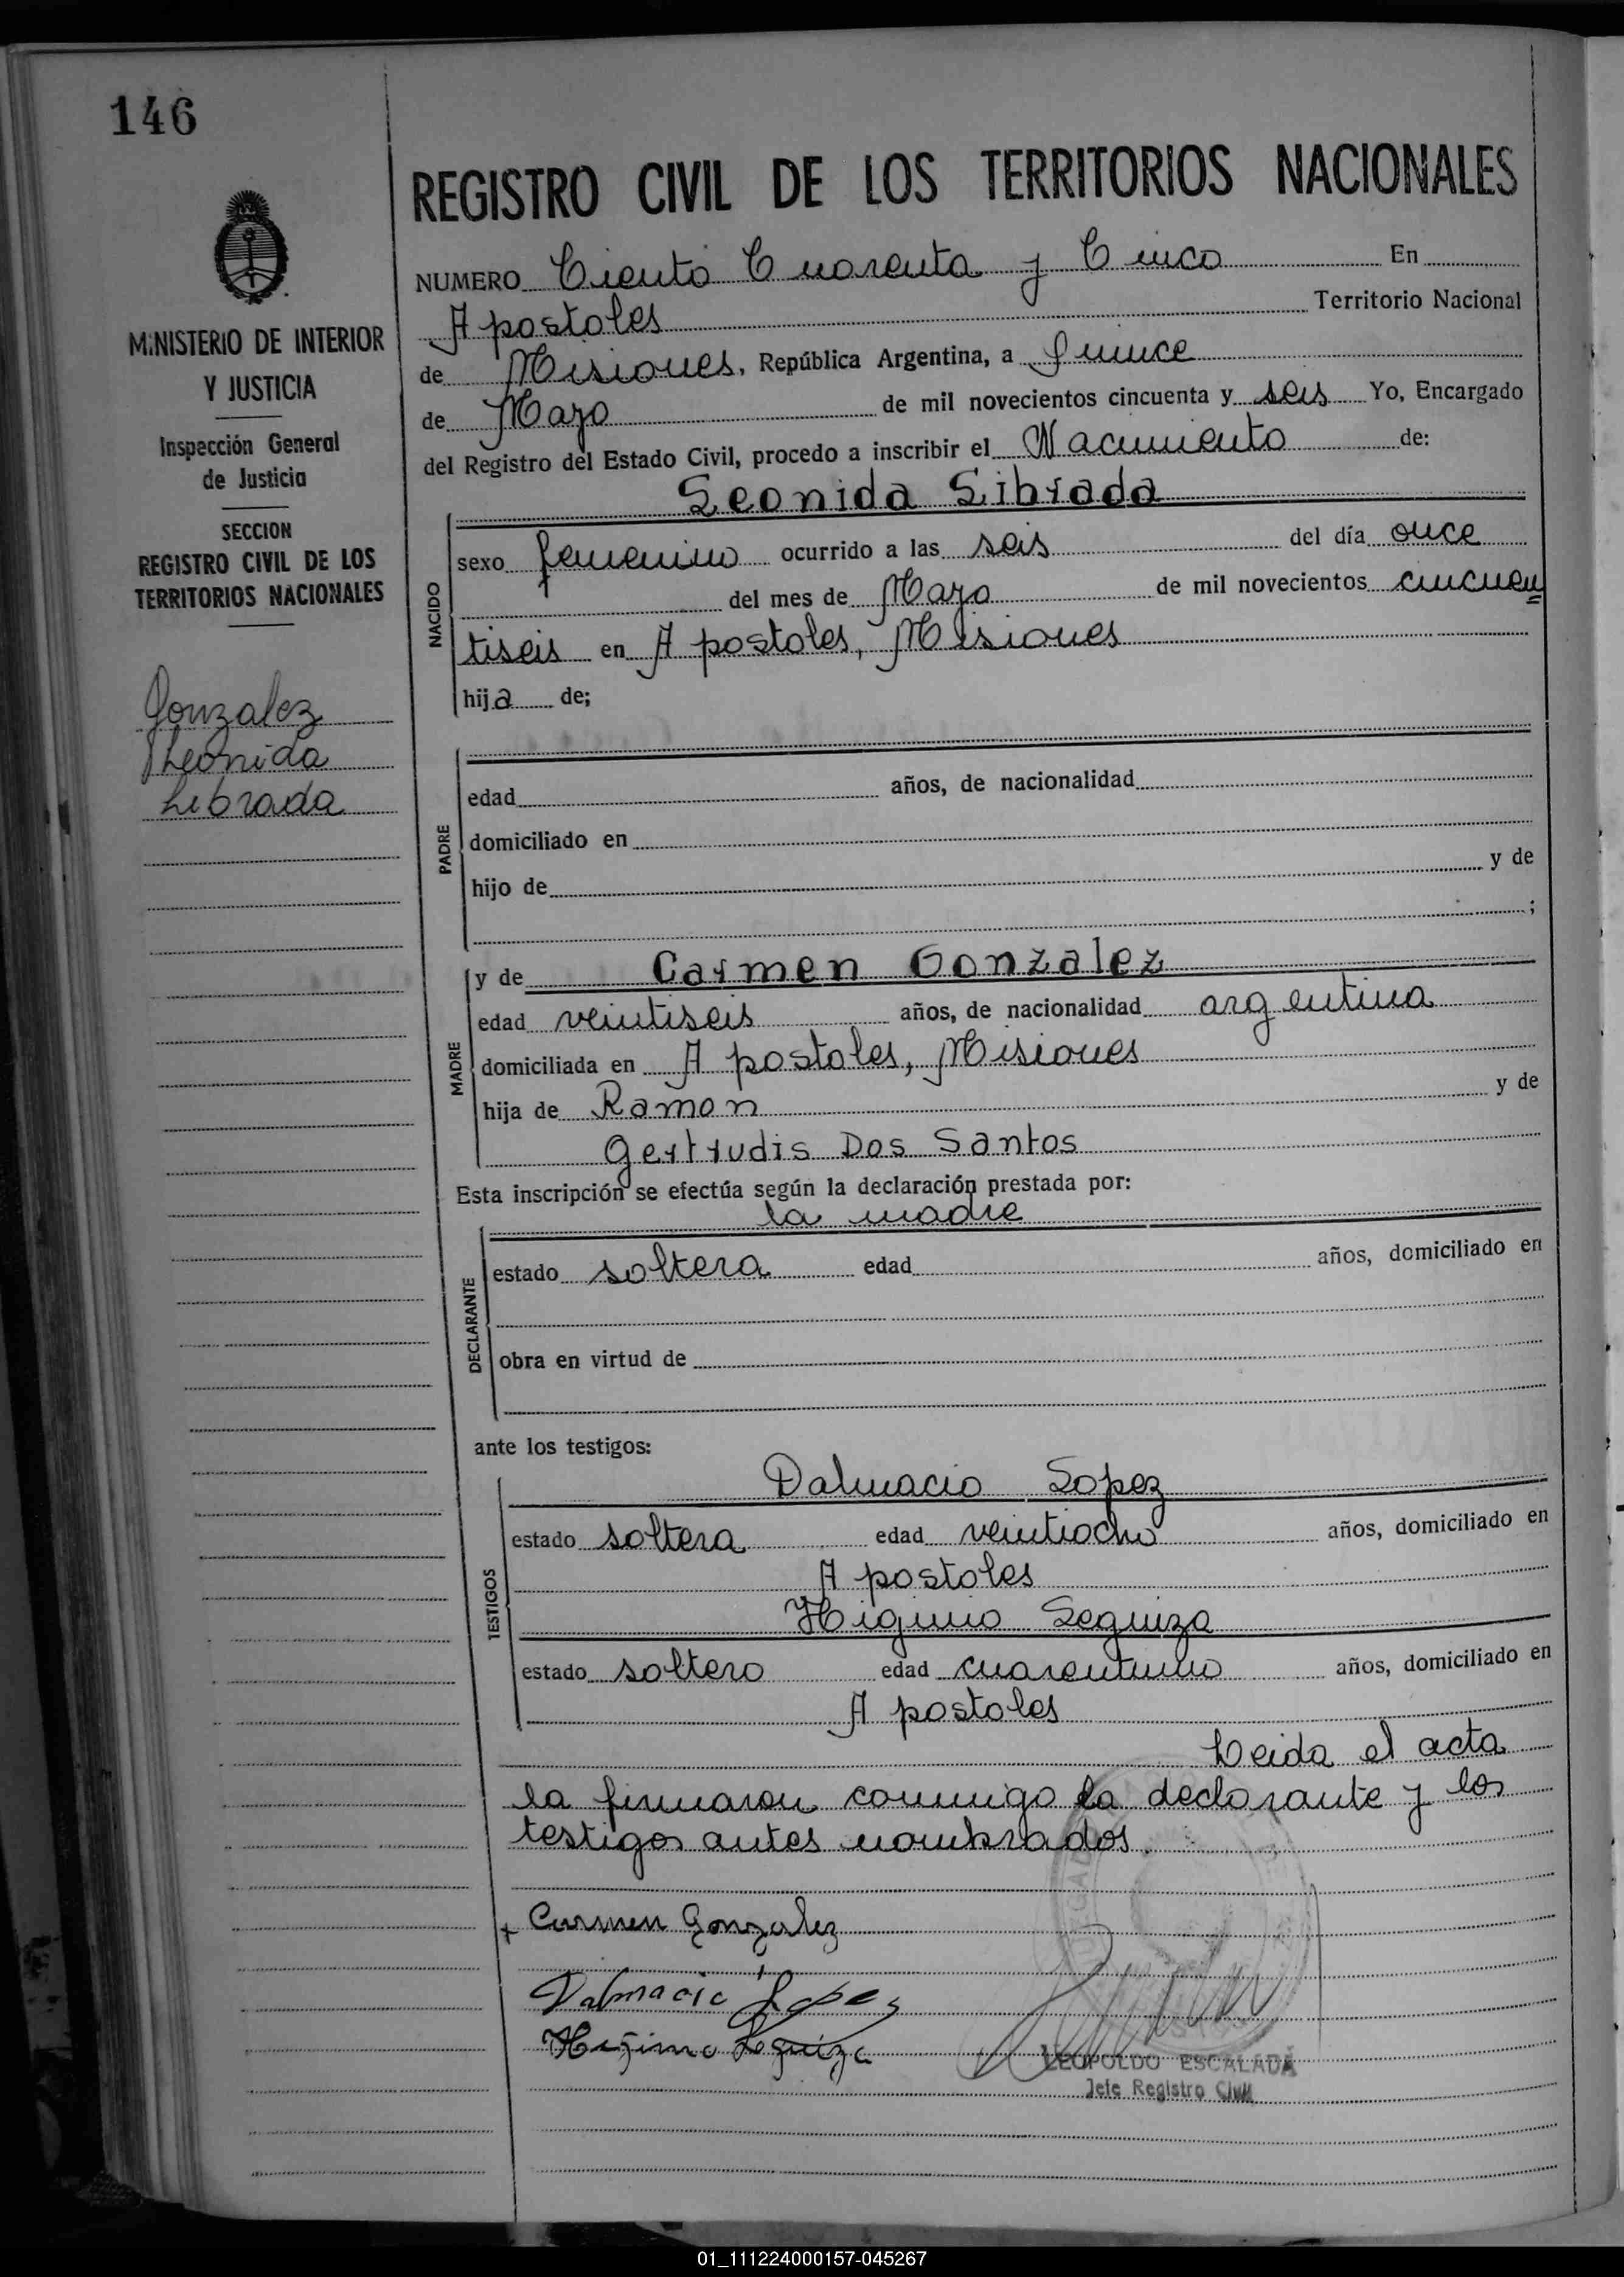 146
REGISTRO CIVIL DE LOS TERRITORIOS NACIONALES
NUMERO Ciento Cuarenta y Cinco En
Apostoles Territorio Nacional
de Misiones, República Argentina, a Quince
de Mayo de mil novecientos cincuenta y seis Yo, Encargado
del Registro del Estado Civil, procedo a inscribir el Nacimiento de:
MINISTERIO DE INTERIOR
Y JUSTICIA
Inspección General
de Justicia
SECCION
REGISTRO CIVIL DE LOS
TERRITORIOS NACIONALES
Gonzalez
Leonida
Librada
NACIDO
Leonida Librada
sexo femenino ocurrido a las seis del día once
del mes de Mayo de mil novecientos cincuen
tiseis en Apostoles, Misiones
hija de;
PADRE
edad años, de nacionalidad
domiciliado en
hijo de y de
;
MADRE
y de Carmen Gonzalez
edad veintiseis años, de nacionalidad argentina
domiciliada en Apostoles, Misiones
hija de Ramon y de
Gertrudis Dos Santos
Esta inscripción se efectúa según la declaración prestada por:
DECLARANTE
la madre
estado soltera edad años, domiciliado en
obra en virtud de
ante los testigos:
TESTIGOS
Dalmacio Lopez
estado soltera edad veintiocho años, domiciliado en
Apostoles
Higinio Leguiza
estado soltero edad cuarentiuno años, domiciliado en
Apostoles
Leida el acta
la firmaron conmigo la declarante y los
testigos antes nombrados.
Carmen Gonzalez
Dalmacio Lopez
Higinio Leguiza
LEOPOLDO ESCALADA
Jefe Registro Civil
01_111224000157-045267